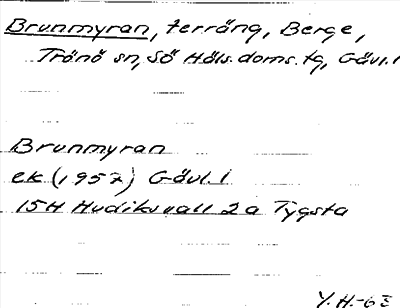 Brunmyran, terräng, Berge,
Trönö sn, Sö Häls. doms. tg, Gävl. l
Brunmyran
ek (1957) Gävl. l
15H Hudiksvall 2a Tygsta
Y. H.-63